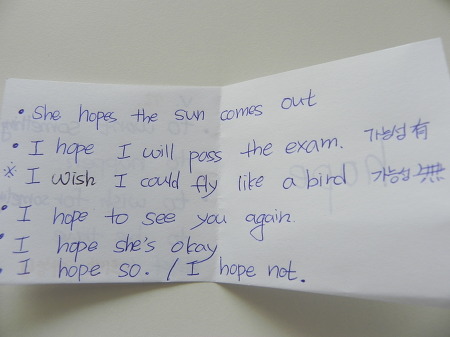 • She hopes the sun comes out
• I hope I will pass the exam. 가능성 有
※ I wish I could fly like a bird 가능성 無
• I hope to see you again.
• I hope she's okay
• I hope so. / I hope not.